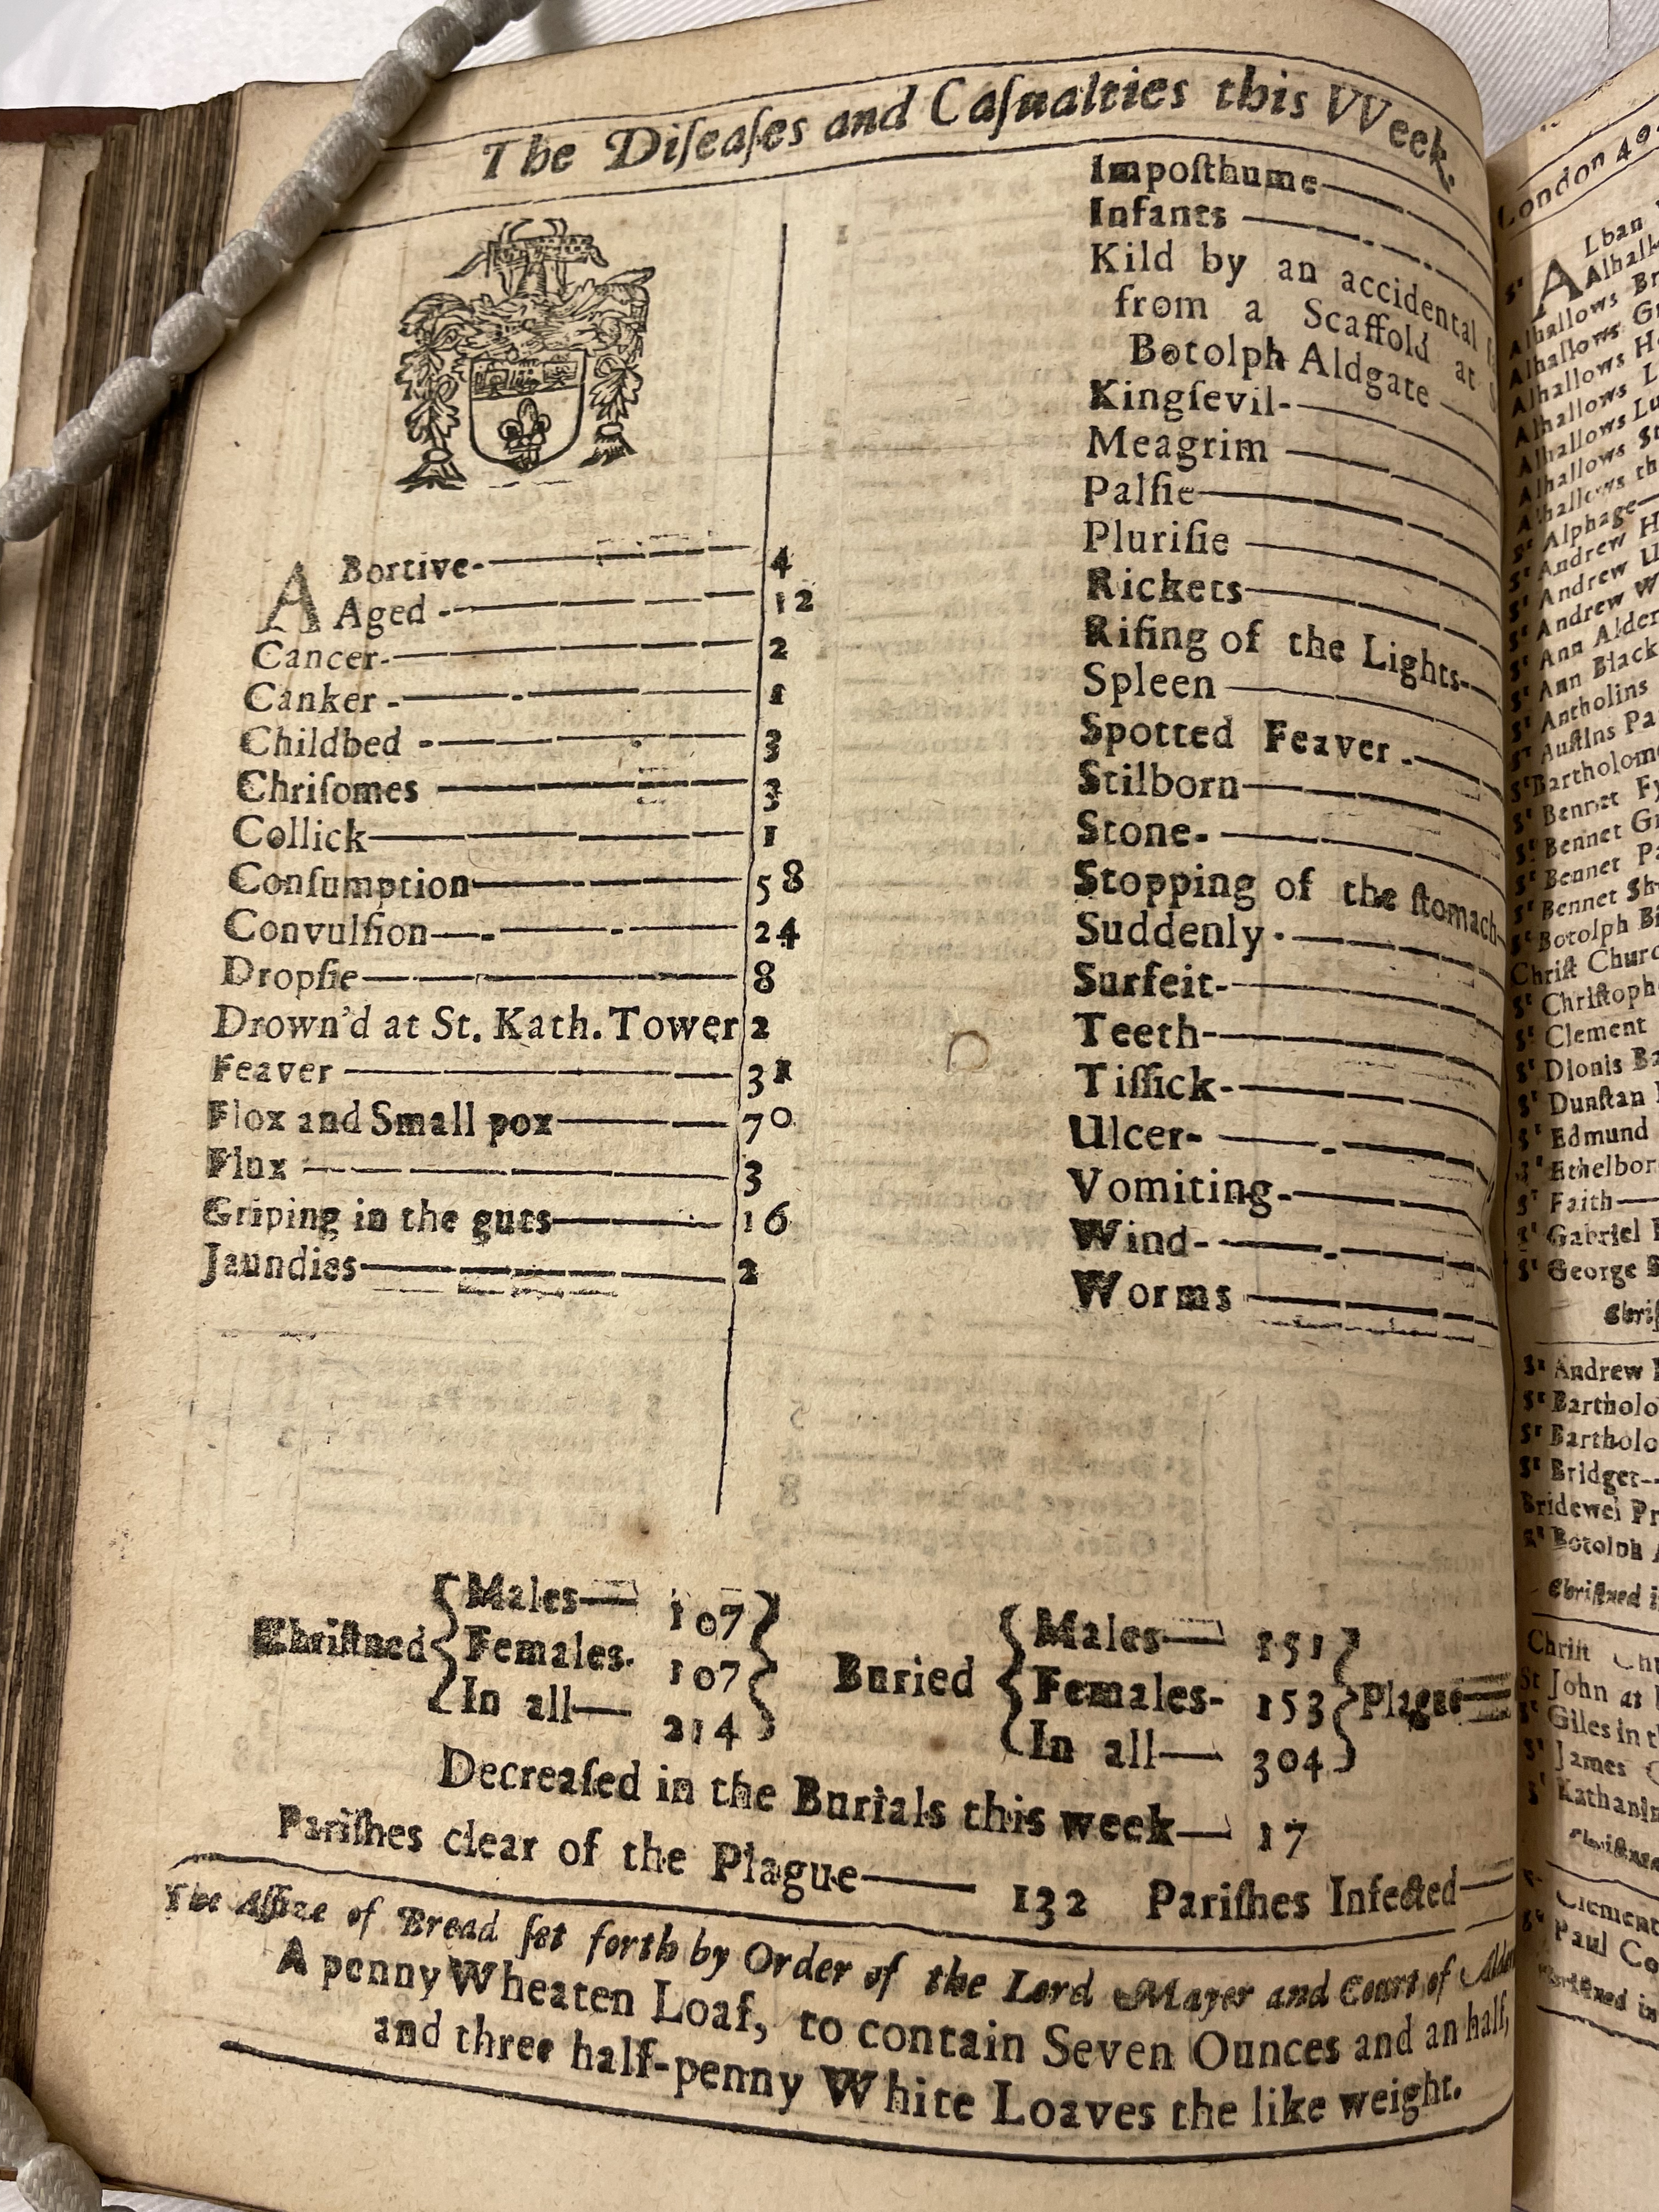 The Diſeaſes and Caſualties this VVeek.
ABortive- 4
Aged - 12
Cancer- 2
Canker - 1
Childbed - 3
Chriſomes 3
Collick 1
Conſumption 58
Convulſion 24
Dropſie 8
Drown'd at St. Kath. Tower 2
Feaver 31
Flox and Small pox 70
Flux 3
Griping in the guts 16
Jaundies 2
Impoſthume
Infants
Kild by an accidental
from a Scaffold at
Botolph Aldgate
Kingſevil-
Meagrim
Palſie
Pluriſie
Rickets
Riſing of the Lights-
Spleen
Spotted Feaver -
Stilborn
Stone-
Stopping of the ſtomach
Suddenly -
Surfeit-
Teeth-
Tiſſick-
Ulcer-
Vomiting-
Wind-
Worms
Chriſtned
Males— 107
Females. 107
In all— 214
Buried
Males— 151
Females- 153
In all— 304
Plague
Decreaſed in the Burials this week— 17
Pariſhes clear of the Plague— 132 Pariſhes Infected—
The Aſſize of Bread ſet forth by Order of the Lord Mayer and Court of
A penny Wheaten Loaf, to contain Seven Ounces and an half,
and three half-penny White Loaves the like weight.
London
ALban
Alhallows
Alhallows
Alhallows
Alhallows
Alhallows
Alhallows
Alhallows
Sᵗ Alphage—
Sᵗ Andrew
Sᵗ Andrew
Sᵗ Andrew
Sᵗ Ann
Sᵗ Ann
Sᵗ Antholins
Sᵗ Auſtins
Sᵗ
Sᵗ Bennet
Sᵗ Bennet
Sᵗ Bennet
Sᵗ Bennet
Sᵗ Botolph
Chriſt
Sᵗ
Sᵗ Clement
Sᵗ Dionis
Sᵗ Dunſtan
Sᵗ Edmund
Sᵗ
Sᵗ Faith—
Sᵗ Gabriel
Sᵗ George
Sᵗ Andrew
Sᵗ
Sᵗ
Sᵗ Bridget--
Bridewel
Sᵗ Botolph
Chriſtned
Chriſt
St John at
Sᵗ Giles in
Sᵗ James
Sᵗ
Paul